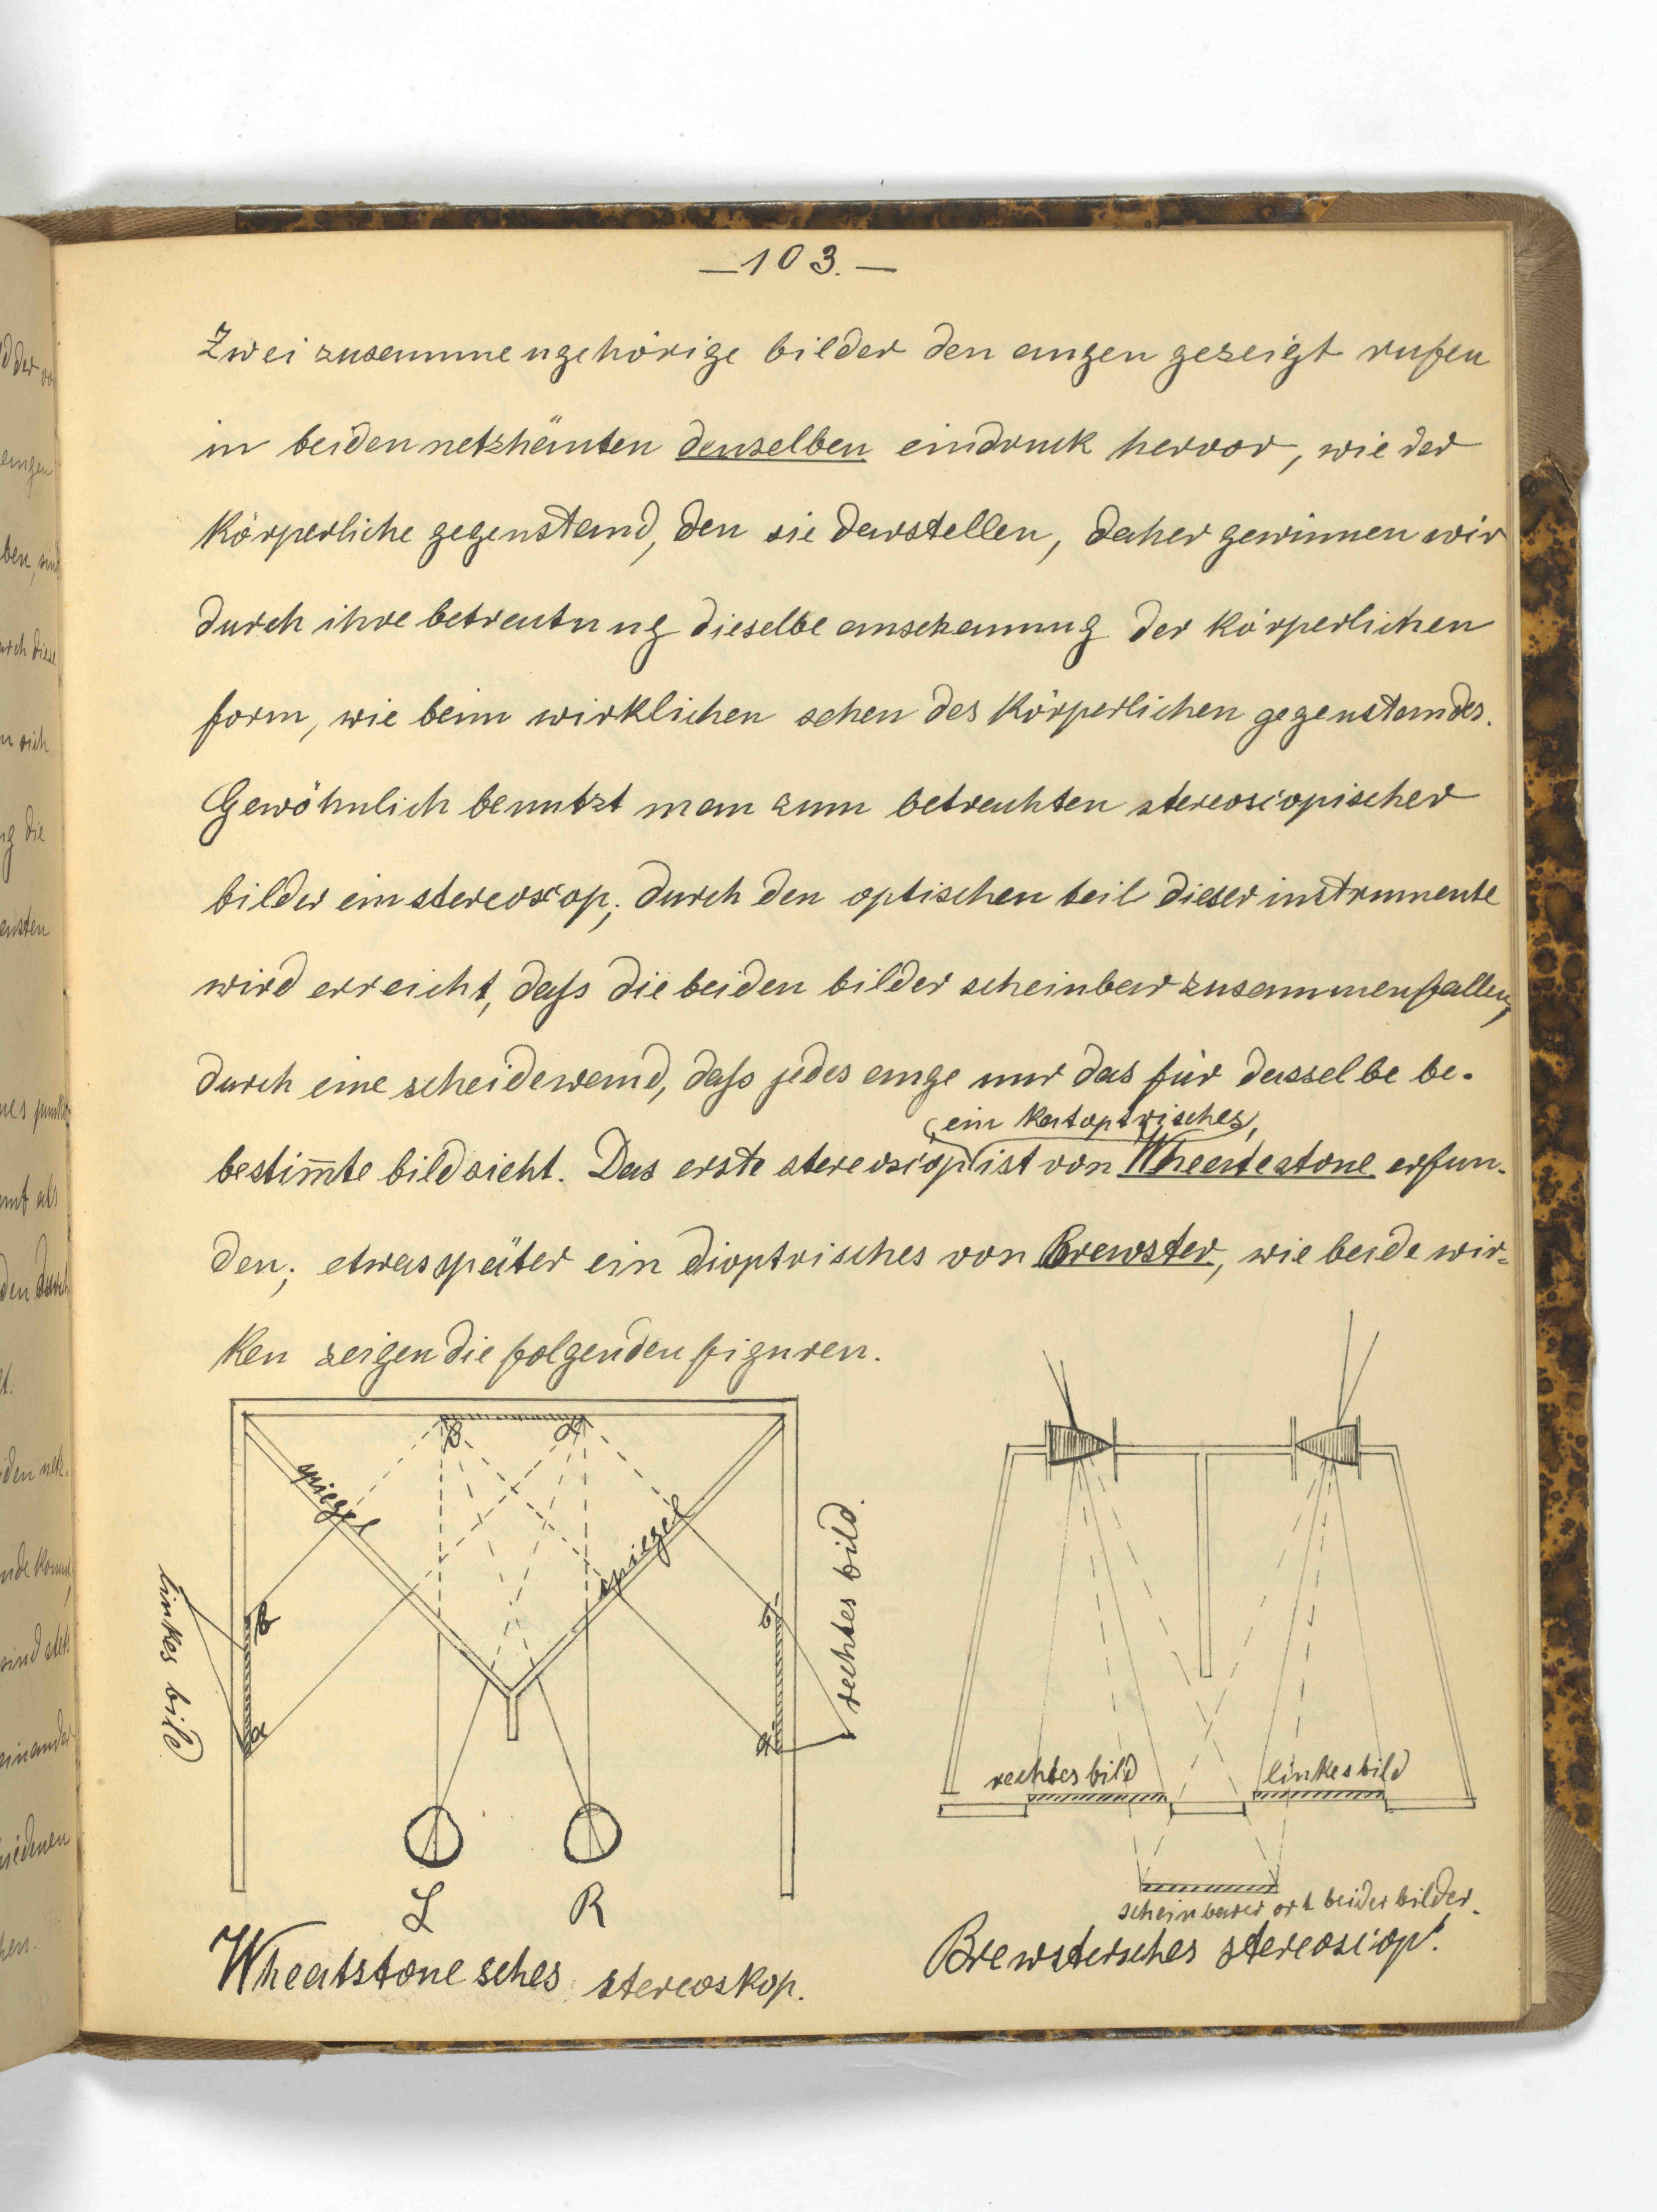 —103.—
Zwei zusammengehörige bilder den augen gezeigt rufen
in beiden netzhäuten denselben eindruck hervor, wie der
körperliche gegenstand, den sie darstellen, daher gewinnen wir
durch ihre betrachtung dieselbe anschauung der körperlichen
form, wie beim wirklichen sehen des körperlichen gegenstandes.
Gewöhnlich benutzt man zum betrachten stereoscopischer
bilder ein stereoscop; durch den optischen teil dieser instrumente
wird erreicht, daſs die beiden bilder scheinbar zusammenfallen,
durch eine scheidewand, daſs jedes auge nur das für dasselbe be-
(ein katoptrisches)
bestim̄te bild sieht. Das erste stereoscop ist von Wheatstone erfun-
den; etwas später ein dioptrisches von Brewster, wie beide wir-
ken zeigen die folgenden figuren.
B A
spiegel spiegel
linkes bild b a
b' a' rechtes bild.
L R
Wheatstonesches stereoskop.
rechtes bild linkes bild
scheinbarer ort beider bilder.
Brewstersches stereoscop.